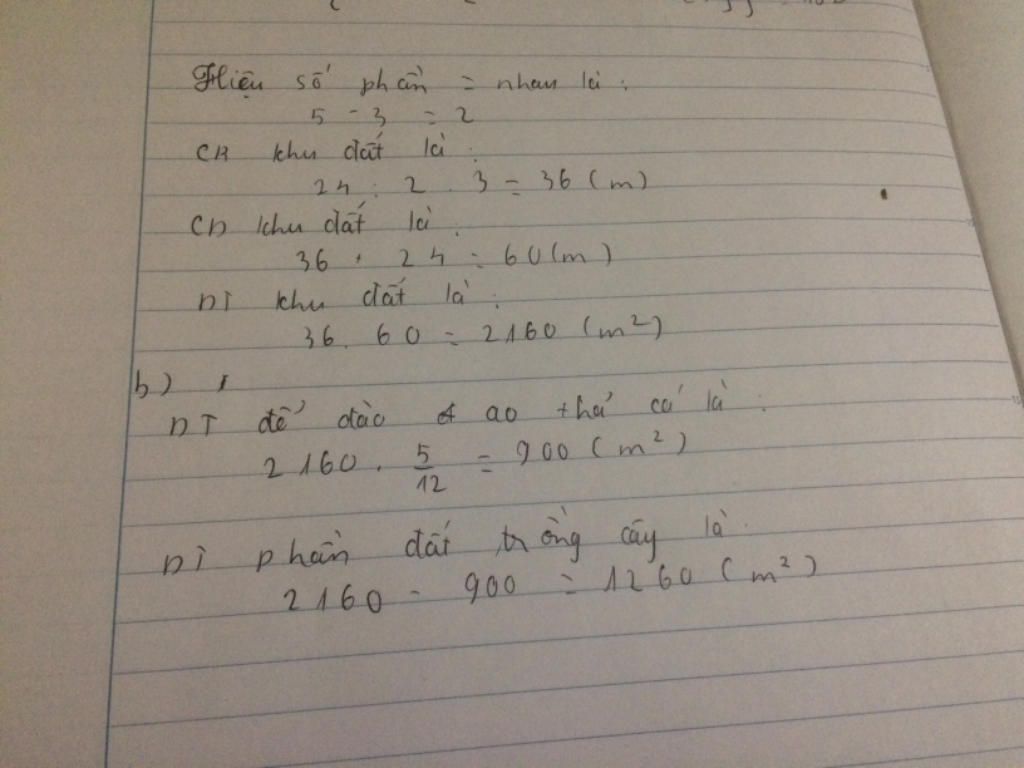 Hiệu số phần = nhau là :
5 - 3 = 2
CR khu đất là :
24 : 2 . 3 = 36 (m)
CD khu đất là :
36 + 24 = 60 (m)
DT khu đất là :
36 . 60 = 2160 (m²)
b)
DT để đào ao thả cá là :
2160 . 5/12 = 900 (m²)
DT phần đất trồng cây là :
2160 - 900 = 1260 (m²)